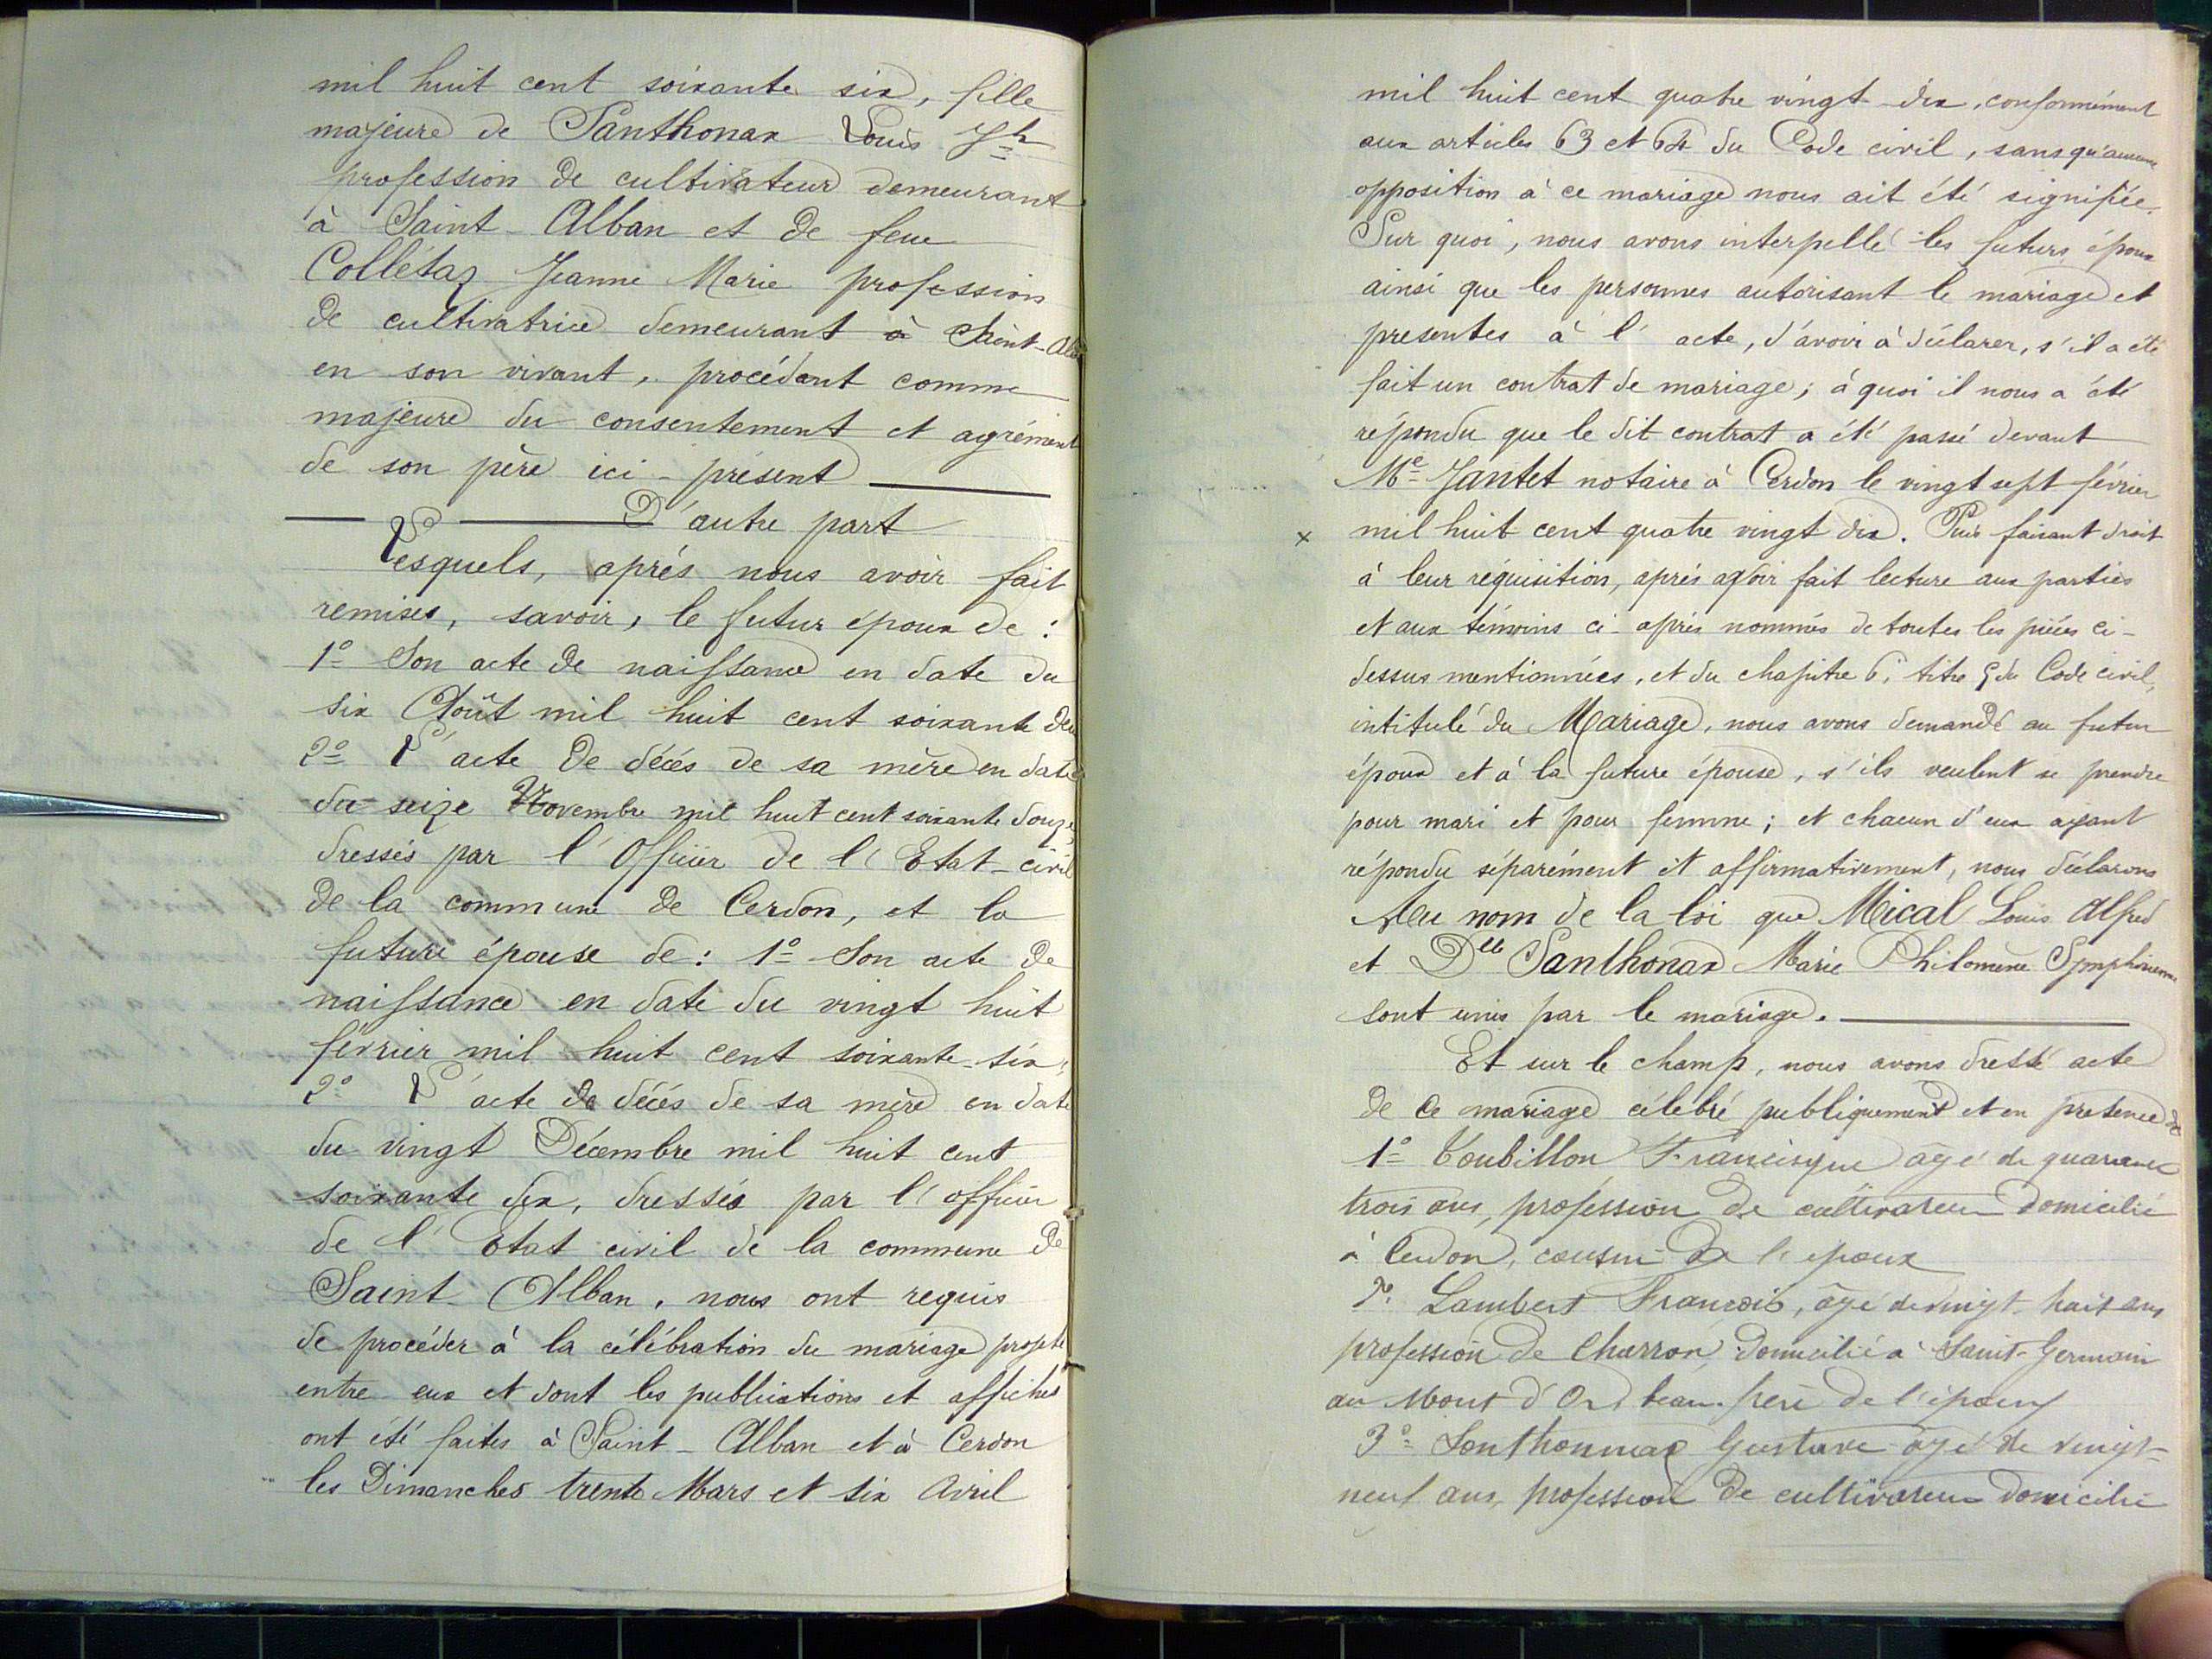 mil huit cent soixante six, fille
majeure de Santhonax Louis Jh
profession de cultivateur demeurant
à Saint-Alban et de feue
Collétaz Jeanne Marie profession
de cultivatrice demeurant à Saint-Alban
en son vivant, procédant comme
majeure du consentement et agrément
de son père ici-présent
D'autre part
Lesquels, aprés nous avoir fait
remises, savoir, le futur époux de :
1º Son acte de naissance en date du
six Août mil huit cent soixante deux
2º L'acte de décés de sa mère en date
du seize Novembre mil huit cent soixante douze,
dressés par l'Officier de l'Etat-civil
de la commune de Cerdon, et la
future épouse de : 1º Son acte de
naissance en date du vingt huit
février mil huit cent soixante-six,
2º L'acte de décés de sa mère en date
du vingt Décembre mil huit cent
soixante dix, dressés par l'officier
de l'Etat civil de la commune de
Saint-Alban, nous ont requis
de procéder à la célébration du mariage projeté
entre eux et dont les publications et affiches
ont été faites à Saint-Alban et à Cerdon
les Dimanches trente Mars et six Avril
mil huit cent quatre vingt-dix, conformément
aux articles 63 et 64 du Code civil, sans qu'aucune
opposition à ce mariage nous ait été signifiée.
Sur quoi, nous avons interpellé les futurs époux
ainsi que les personnes autorisant le mariage et
presentes à l'acte, d'avoir à déclarer, s'il a été
fait un contrat de mariage ; à quoi il nous a été
répondu que le dit contrat a été passé devant
Me Jantet notaire à Cerdon le vingt sept février
x mil huit cent quatre vingt dix. Puis faisant droit
à leur réquisition, aprés avoir fait lecture aux parties
et aux témoins ci-aprés nommés de toutes les pièces ci-
dessus mentionnées, et du chapitre 6, titre 5 du Code civil,
intitulé du Mariage, nous avons demandé au futur
époux et à la future épouse, s'ils veulent se prendre
pour mari et pour femme ; et chacun d'eux ayant
répondu séparément et affirmativement, nous déclarons
Au nom de la loi que Mical Louis Alfred
et Dlle Santhonax Marie Philomène Symphorienne
sont unis par le mariage.
Et sur le champ, nous avons dressé acte
de ce mariage célébré publiquement et en presence de
1º Toubillon Francisque âgé de quarante
trois ans, profession de cultivateur domicilié
à Cerdon, cousin de l'époux
2º Lambert François, âgé de vingt-huit ans
profession de Charron, domicilié à Saint-Germain
au Mont d'Or, beau-frère de l'époux
3º Santhonnax Gustave âgé de vingt-
neuf ans, profession de cultivateur domicilié